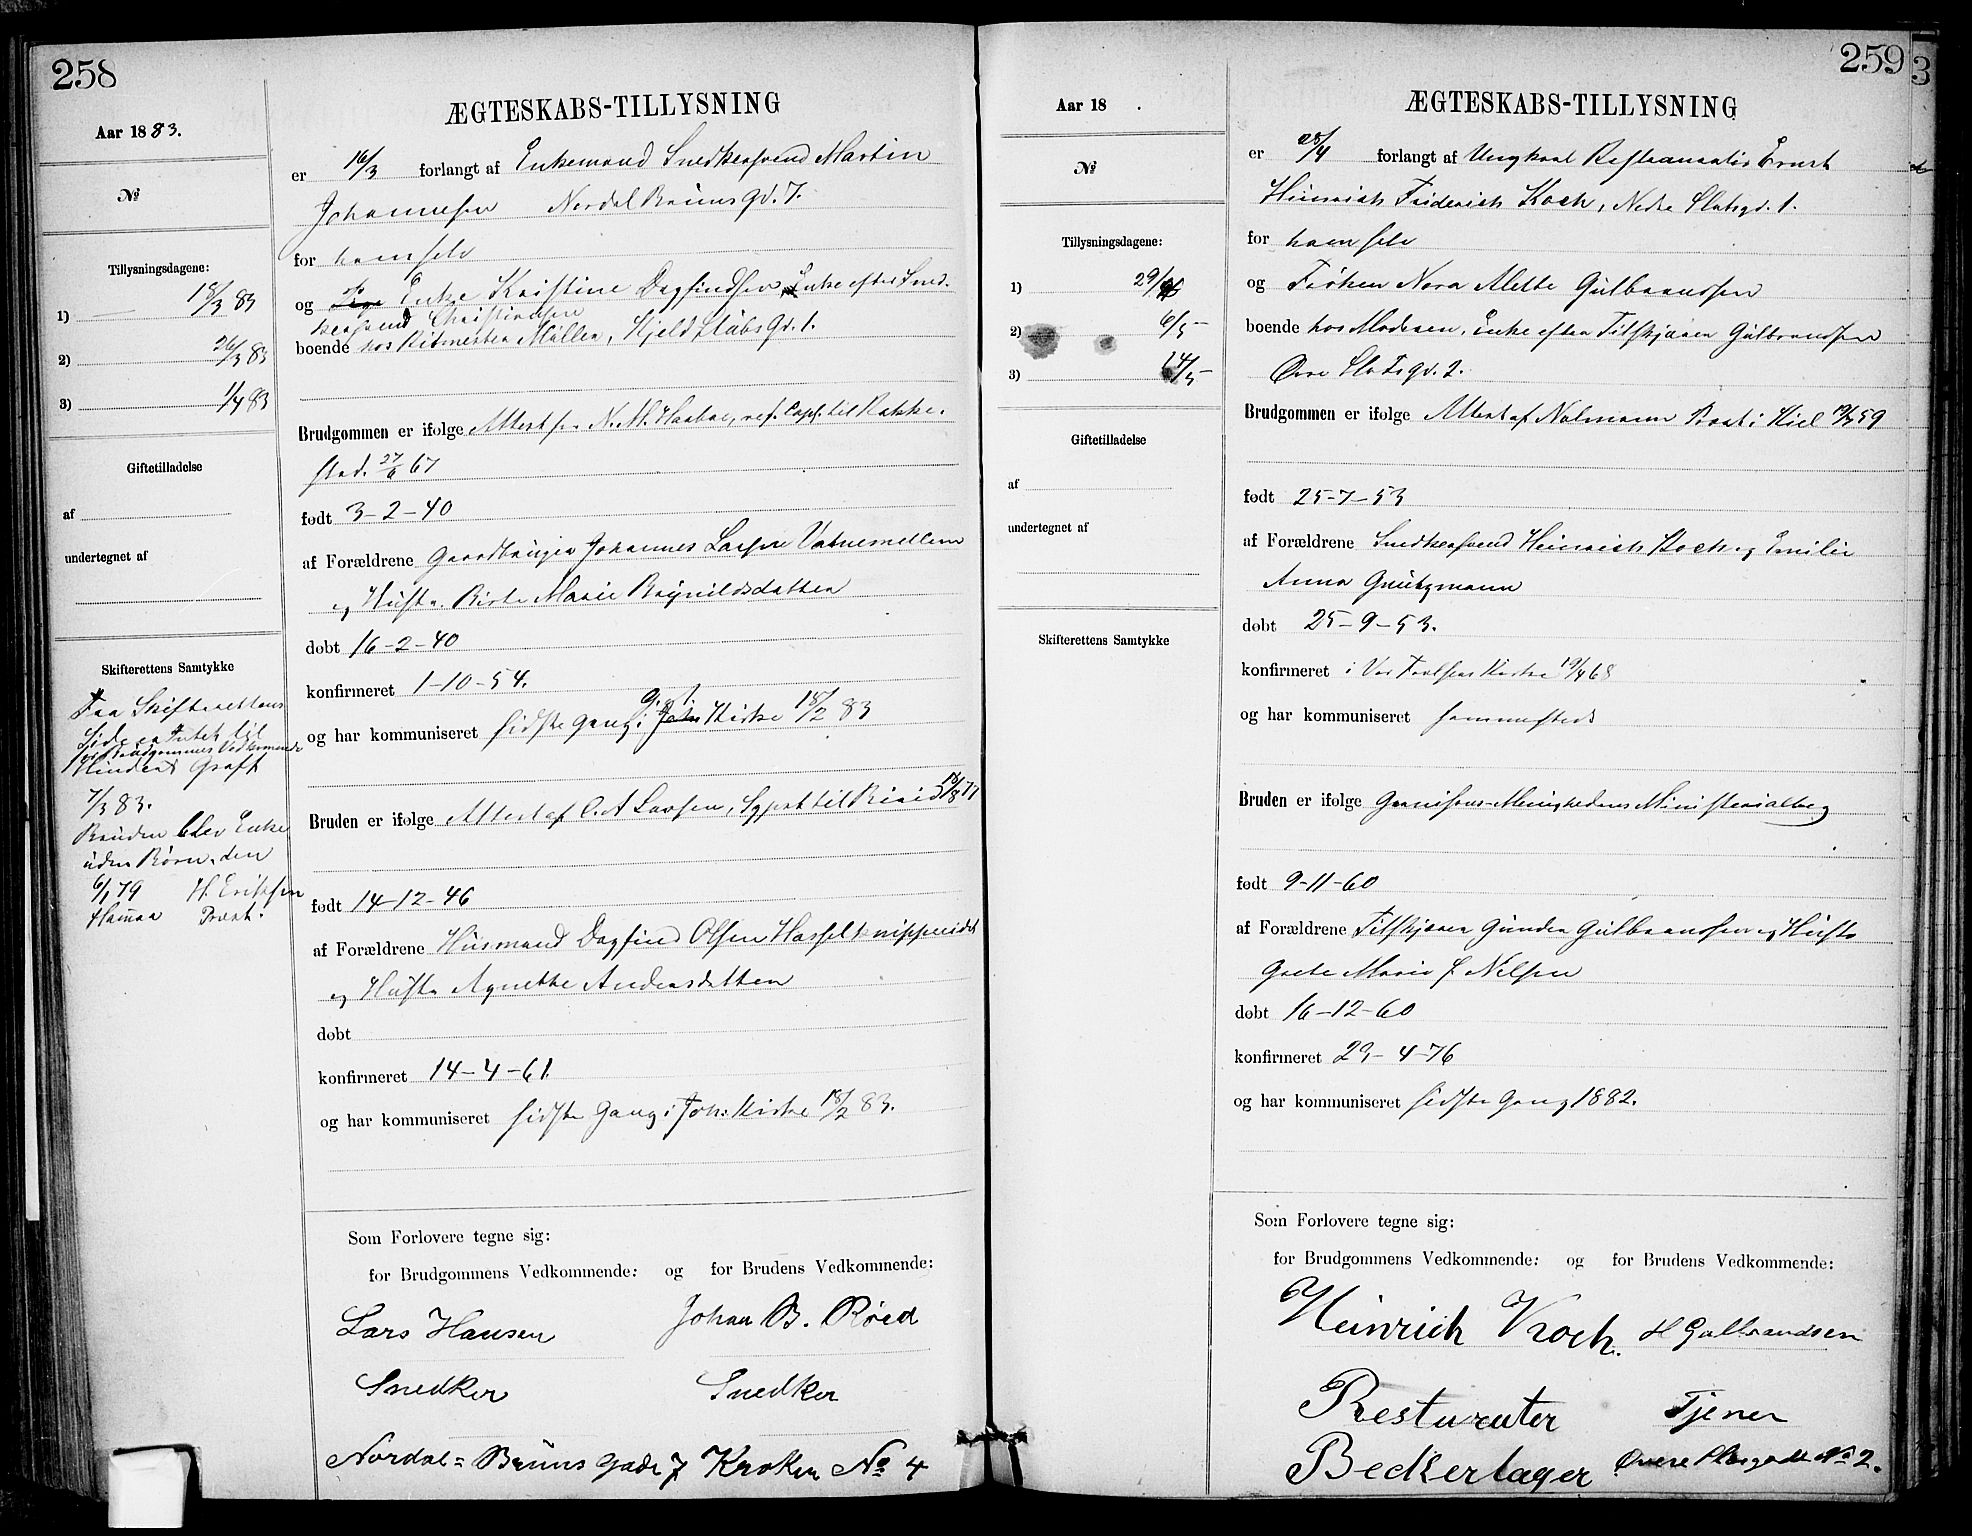 258
Aar 1883.
No
Tillysningsdagene:
1) 18/3 83
2) 26/3 83
3) 1/4 83
Giftetilladelse
af
undertegnet af
Skifterettens Samtykke
Fra Skifterettens
Side er Intet til
for Brudgommens Vedkommende
Hinder
7/3 83.
Bruden blev Enke
uden Børn, den
6/1 79 H. Eriksen
Præst.
ÆGTESKABS-TILLYSNING
er 16/3 forlangt af Enkemand Snedkersvend Martin
Johannesen Nordal Bruns Gd. 7.
for ham selv
og Enke Kristine Dagfindsen, Enke efter Sned-
kersvend Christiansen
boende hos Ritmester Müller, Hjeld Stubs Gd. 1.
Brudgommen er ifølge Attest fra N. M. Haabae, res. Capl. til Rakke-
stad. 27/6 67
født 3-2-40
af Forældrene Gaardbruger Johannes Larsen Vatnemellem
og Hustr. Birte Marie Brynildsdatter
døbt 16-2-40
konfirmeret 1-10-54.
og har kommuniseret sidste Gang i Kirke 18/2 83
Bruden er ifølge Attest af C. A Larsen, Sgprst til Biri 18/8 79
født 14-12-46
af Forældrene Husmand Dagfind Olsen Hasselknippeidet
og Hustr. Agnethe Andersdatter
døbt
konfirmeret 14-4-61.
og har kommuniseret sidste Gang i Joh: Kirke 18/2 83.
Som Forlovere tegne sig:
for Brudgommens Vedkommende: og for Brudens Vedkommende:
Lars Hansen Johan B. Röed
Snedker Snedker
Nordal=Bruns Gade 7 Kroken No 4
259
3
Aar 18 .
No
Tillysningsdagene:
1) 29/4
2) 6/5 -
3) 14/5 -
Giftetilladelse
af
undertegnet af
Skifterettens Samtykke
ÆGTESKABS-TILLYSNING
er 28/4 forlangt af Ungkarl Restauratør Ernst
Heinrich Friderich Koch, Nedre Slotsgd. 1.
for ham selv
og Frøken Nora Alette Gulbrandsen
boende hos Moderen, Enke efter Tilskjærer Gulbrandsen
Øvre Slotsgd. 2.
Brudgommen er ifølge Attest af Nalmann Præst i Kiel 59
født 25-7-53
af Forældrene Snedkersvend Heinrich Koch og Emilie
Anna Grützmann
døbt 25-9-53.
konfirmeret i Vor Frelsers Kirke 19/4 68
og har kommuniseret sammesteds
Bruden er ifølge Garnisons-Menighedens Ministerialbog
født 9-11-60
af Forældrene Tilskjærer Gunder Gulbrandsen og Hustr
Grete Marie f. Nilsen
døbt 16-12-60
konfirmeret 23-4-76
og har kommuniseret sidste Gang 1882.
Som Forlovere tegne sig:
for Brudgommens Vedkommende: og for Brudens Vedkommende:
Heinrich Koch. H Gulbrandsen
Resturatør Tjener
Beckerlager Øvere Slosgade No 2.